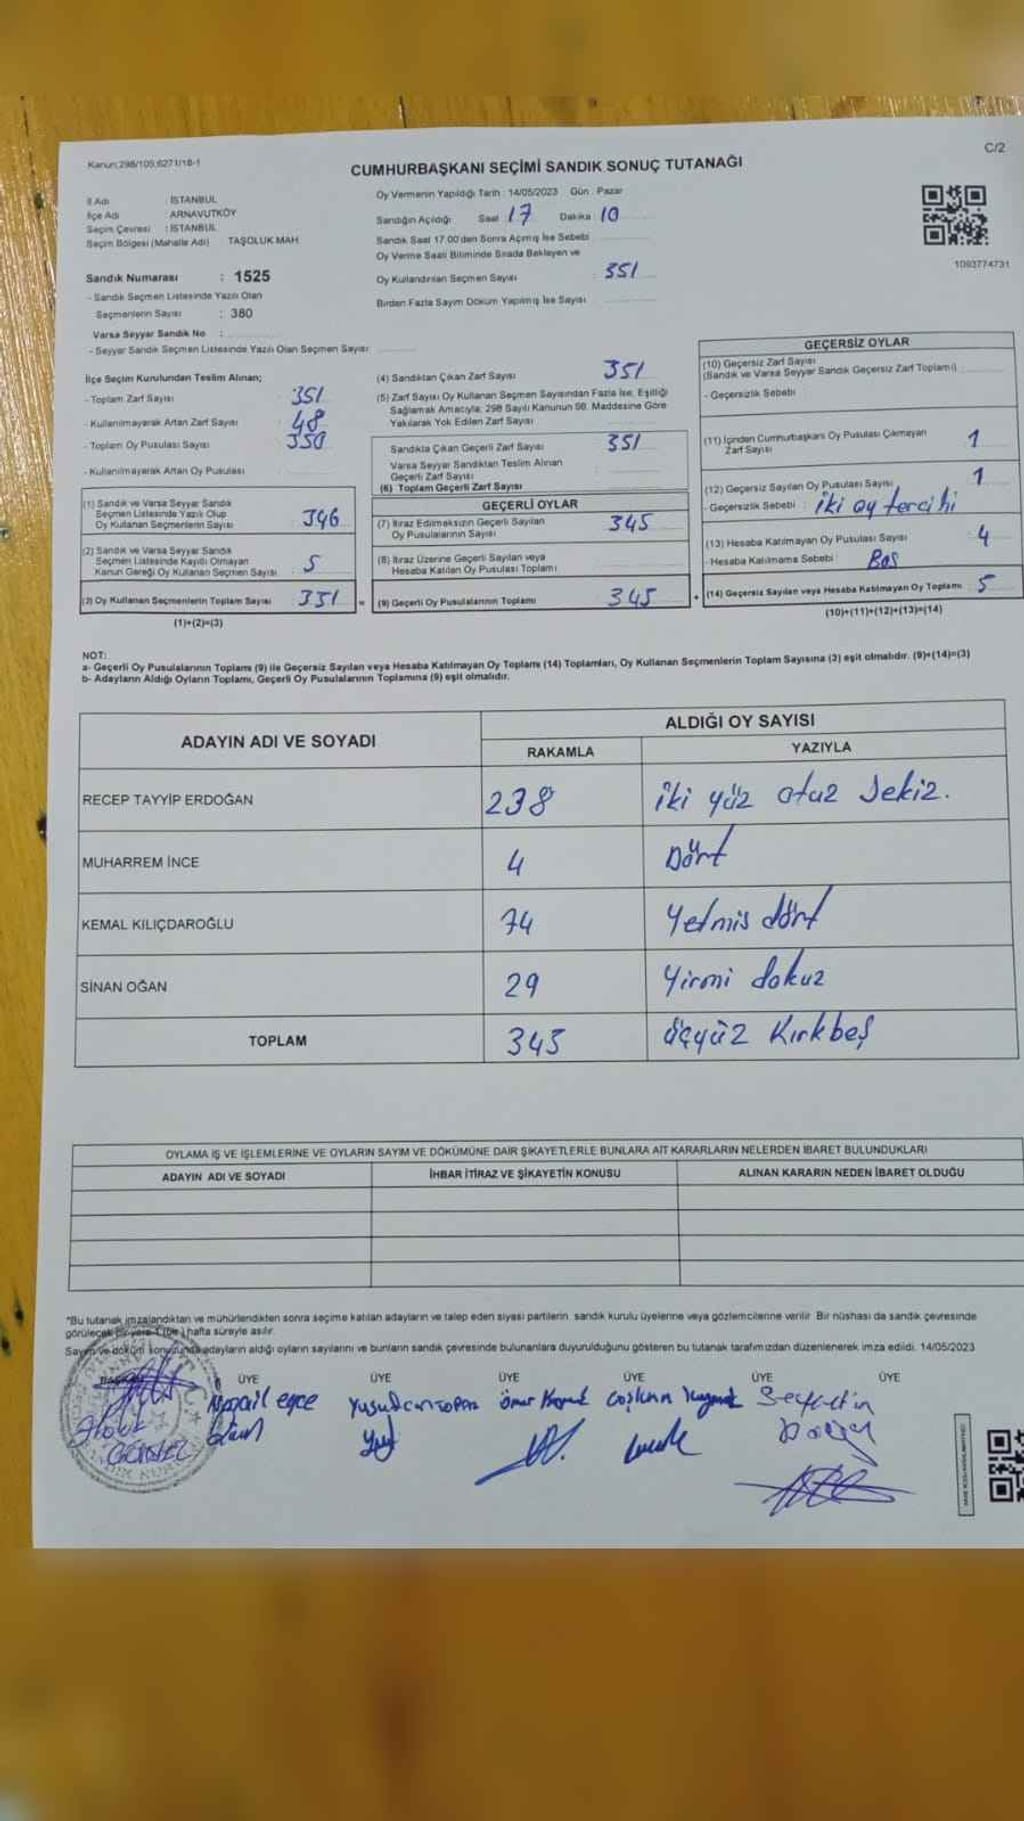 Kanun: 298/105,6271/18-1
C/2
CUMHURBAŞKANI SEÇİMİ SANDIK SONUÇ TUTANAĞI
İl Adı : İSTANBUL
İlçe Adı : ARNAVUTKÖY
Seçim Çevresi : İSTANBUL
Seçim Bölgesi (Mahalle Adı) TAŞOLUK MAH
Sandık Numarası : 1525
- Sandık Seçmen Listesinde Yazılı Olan
Seçmenlerin Sayısı : 380
Varsa Seyyar Sandık No :
- Seyyar Sandık Seçmen Listesinde Yazılı Olan Seçmen Sayısı
Oy Vermenin Yapıldığı Tarih : 14/05/2023 Gün : Pazar
Sandığın Açıldığı Saat 17 Dakika 10
Sandık Saat 17.00'den Sonra Açılmış İse Sebebi
Oy Verme Saati Bitiminde Sırada Bekleyen ve
Oy Kullandırılan Seçmen Sayısı : 351
Birden Fazla Sayım Döküm Yapılmış İse Sayısı
1093774731
İlçe Seçim Kurulundan Teslim Alınan;
- Toplam Zarf Sayısı 351
- Kullanılmayarak Artan Zarf Sayısı 48
- Toplam Oy Pusulası Sayısı 350
- Kullanılmayarak Artan Oy Pusulası
(1) Sandık ve Varsa Seyyar Sandık
Seçmen Listesinde Yazılı Olup
Oy Kullanan Seçmenlerin Sayısı 346
(2) Sandık ve Varsa Seyyar Sandık
Seçmen Listesinde Kayıtlı Olmayan
Kanun Gereği Oy Kullanan Seçmen Sayısı 5
(3) Oy Kullanan Seçmenlerin Toplam Sayısı 351
(1)+(2)=(3)
(4) Sandıktan Çıkan Zarf Sayısı 351
(5) Zarf Sayısı Oy Kullanan Seçmen Sayısından Fazla İse, Eşitliği
Sağlamak Amacıyla; 298 Sayılı Kanunun 98. Maddesine Göre
Yakılarak Yok Edilen Zarf Sayısı
Sandıkta Çıkan Geçerli Zarf Sayısı 351
Varsa Seyyar Sandıktan Teslim Alınan
Geçerli Zarf Sayısı
(6) Toplam Geçerli Zarf Sayısı
GEÇERLİ OYLAR
(7) İtiraz Edilmeksizin Geçerli Sayılan
Oy Pusulalarının Sayısı 345
(8) İtiraz Üzerine Geçerli Sayılan veya
Hesaba Katılan Oy Pusulası Toplamı
= (9) Geçerli Oy Pusulalarının Toplamı 345
GEÇERSİZ OYLAR
(10) Geçersiz Zarf Sayısı
(Sandık ve Varsa Seyyar Sandık Geçersiz Zarf Toplamı)
- Geçersizlik Sebebi
(11) İçinden Cumhurbaşkanı Oy Pusulası Çıkmayan
Zarf Sayısı 1
(12) Geçersiz Sayılan Oy Pusulası Sayısı 1
- Geçersizlik Sebebi : iki oy tercihi
(13) Hesaba Katılmayan Oy Pusulası Sayısı 4
- Hesaba Katılmama Sebebi : Boş
+ (14) Geçersiz Sayılan veya Hesaba Katılmayan Oy Toplamı 5
(10)+(11)+(12)+(13)=(14)
NOT:
a- Geçerli Oy Pusulalarının Toplamı (9) ile Geçersiz Sayılan veya Hesaba Katılmayan Oy Toplamı (14) Toplamları, Oy Kullanan Seçmenlerin Toplam Sayısına (3) eşit olmalıdır. (9)+(14)=(3)
b- Adayların Aldığı Oyların Toplamı, Geçerli Oy Pusulalarının Toplamına (9) eşit olmalıdır.
ADAYIN ADI VE SOYADI
ALDIĞI OY SAYISI
RAKAMLA YAZIYLA
RECEP TAYYİP ERDOĞAN 238 iki yüz otuz sekiz.
MUHARREM İNCE 4 Dört
KEMAL KILIÇDAROĞLU 74 Yetmis dört
SİNAN OĞAN 29 Yirmi dokuz
TOPLAM 345 üçyüz Kırkbeş
OYLAMA İŞ VE İŞLEMLERİNE VE OYLARIN SAYIM VE DÖKÜMÜNE DAİR ŞİKAYETLERLE BUNLARA AİT KARARLARIN NELERDEN İBARET BULUNDUKLARI
ADAYIN ADI VE SOYADI İHBAR İTİRAZ VE ŞİKAYETİN KONUSU ALINAN KARARIN NEDEN İBARET OLDUĞU
*Bu tutanak imzalandıktan ve mühürlendikten sonra seçime katılan adayların ve talep eden siyasi partilerin, sandık kurulu üyelerine veya gözlemcilerine verilir. Bir nüshası da sandık çevresinde
görülecek bir yere 1 (bir) hafta süreyle asılır.
Sayım ve döküm sonucunda adayların aldığı oyların sayılarını ve bunların sandık çevresinde bulunanlara duyurulduğunu gösteren bu tutanak tarafımızdan düzenlenerek imza edildi. 14/05/2023
BAŞKAN ÜYE ÜYE ÜYE ÜYE ÜYE ÜYE